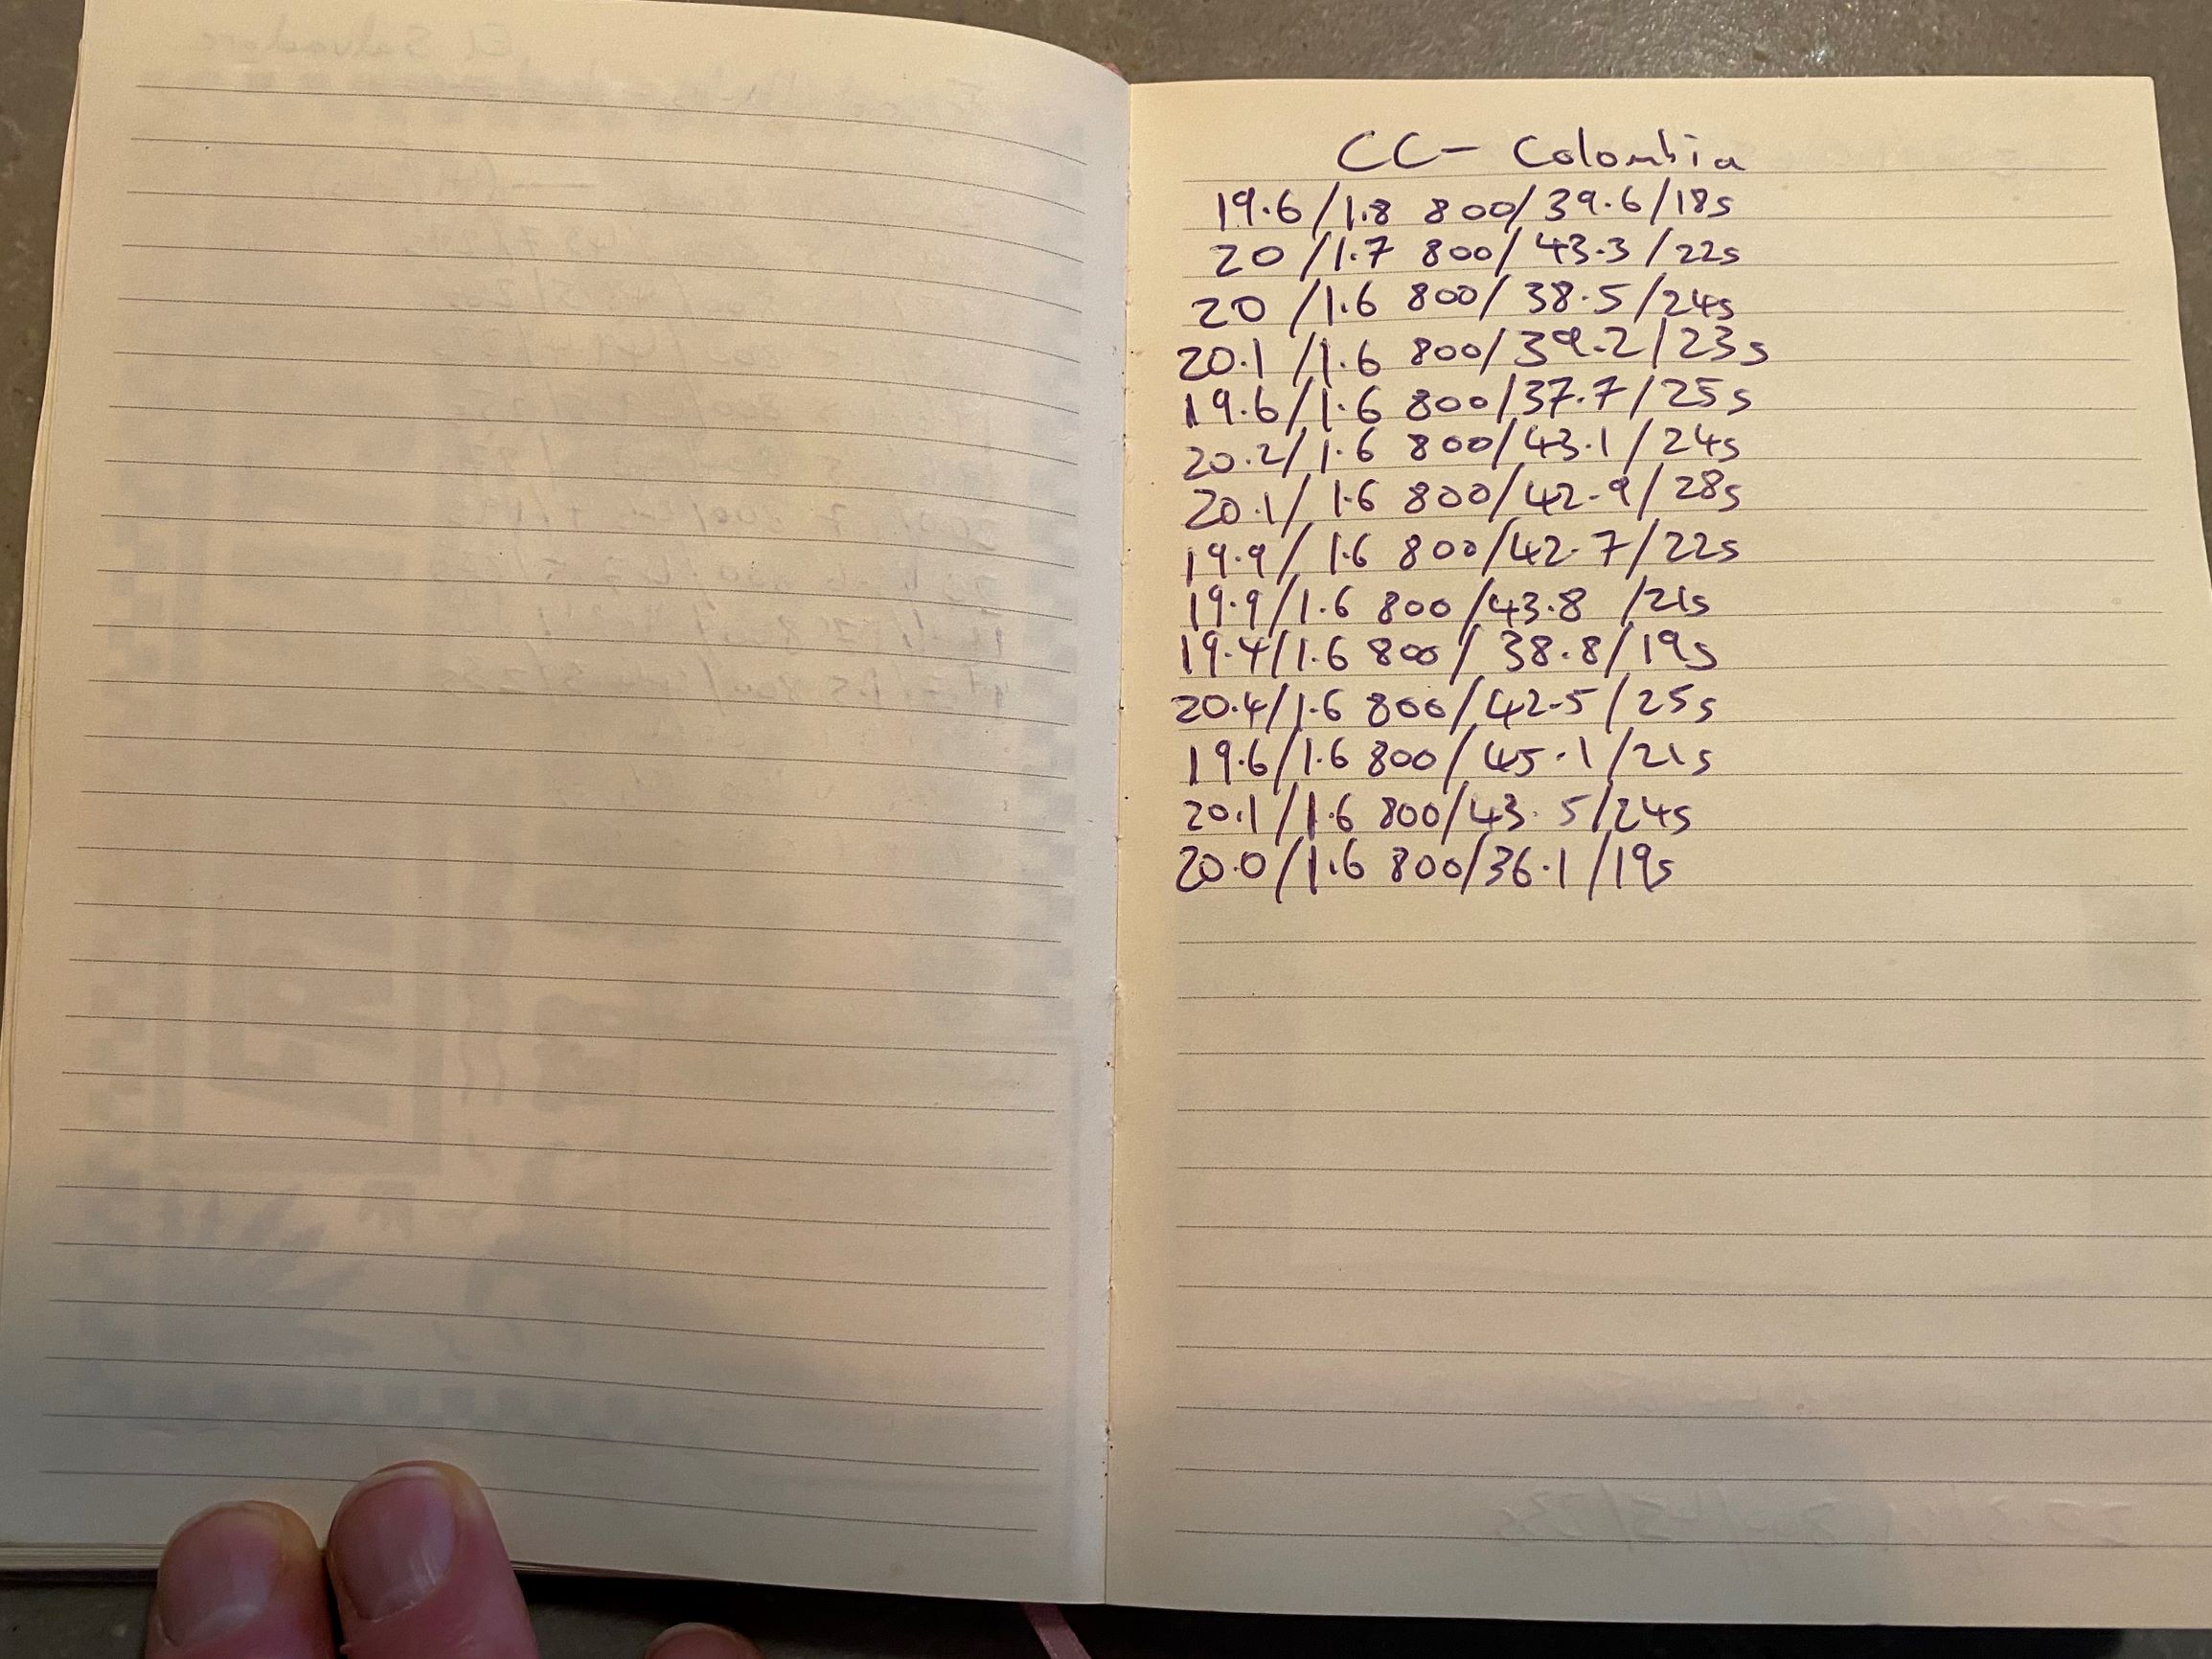 CC- Colombia
19.6/1.8 800/39.6/18s
20 /1.7 800/43.3/22s
20 /1.6 800/38.5/24s
20.1 /1.6 800/39.2/23s
19.6/1.6 800/37.7/25s
20.2/1.6 800/43.1/24s
20.1/1.6 800/42.9/28s
19.9/1.6 800/42.7/22s
19.9/1.6 800/43.8 /21s
19.4/1.6 800/38.8/19s
20.4/1.6 800/42.5/25s
19.6/1.6 800/45.1/21s
20.1/1.6 800/43.5/24s
20.0/1.6 800/36.1/19s